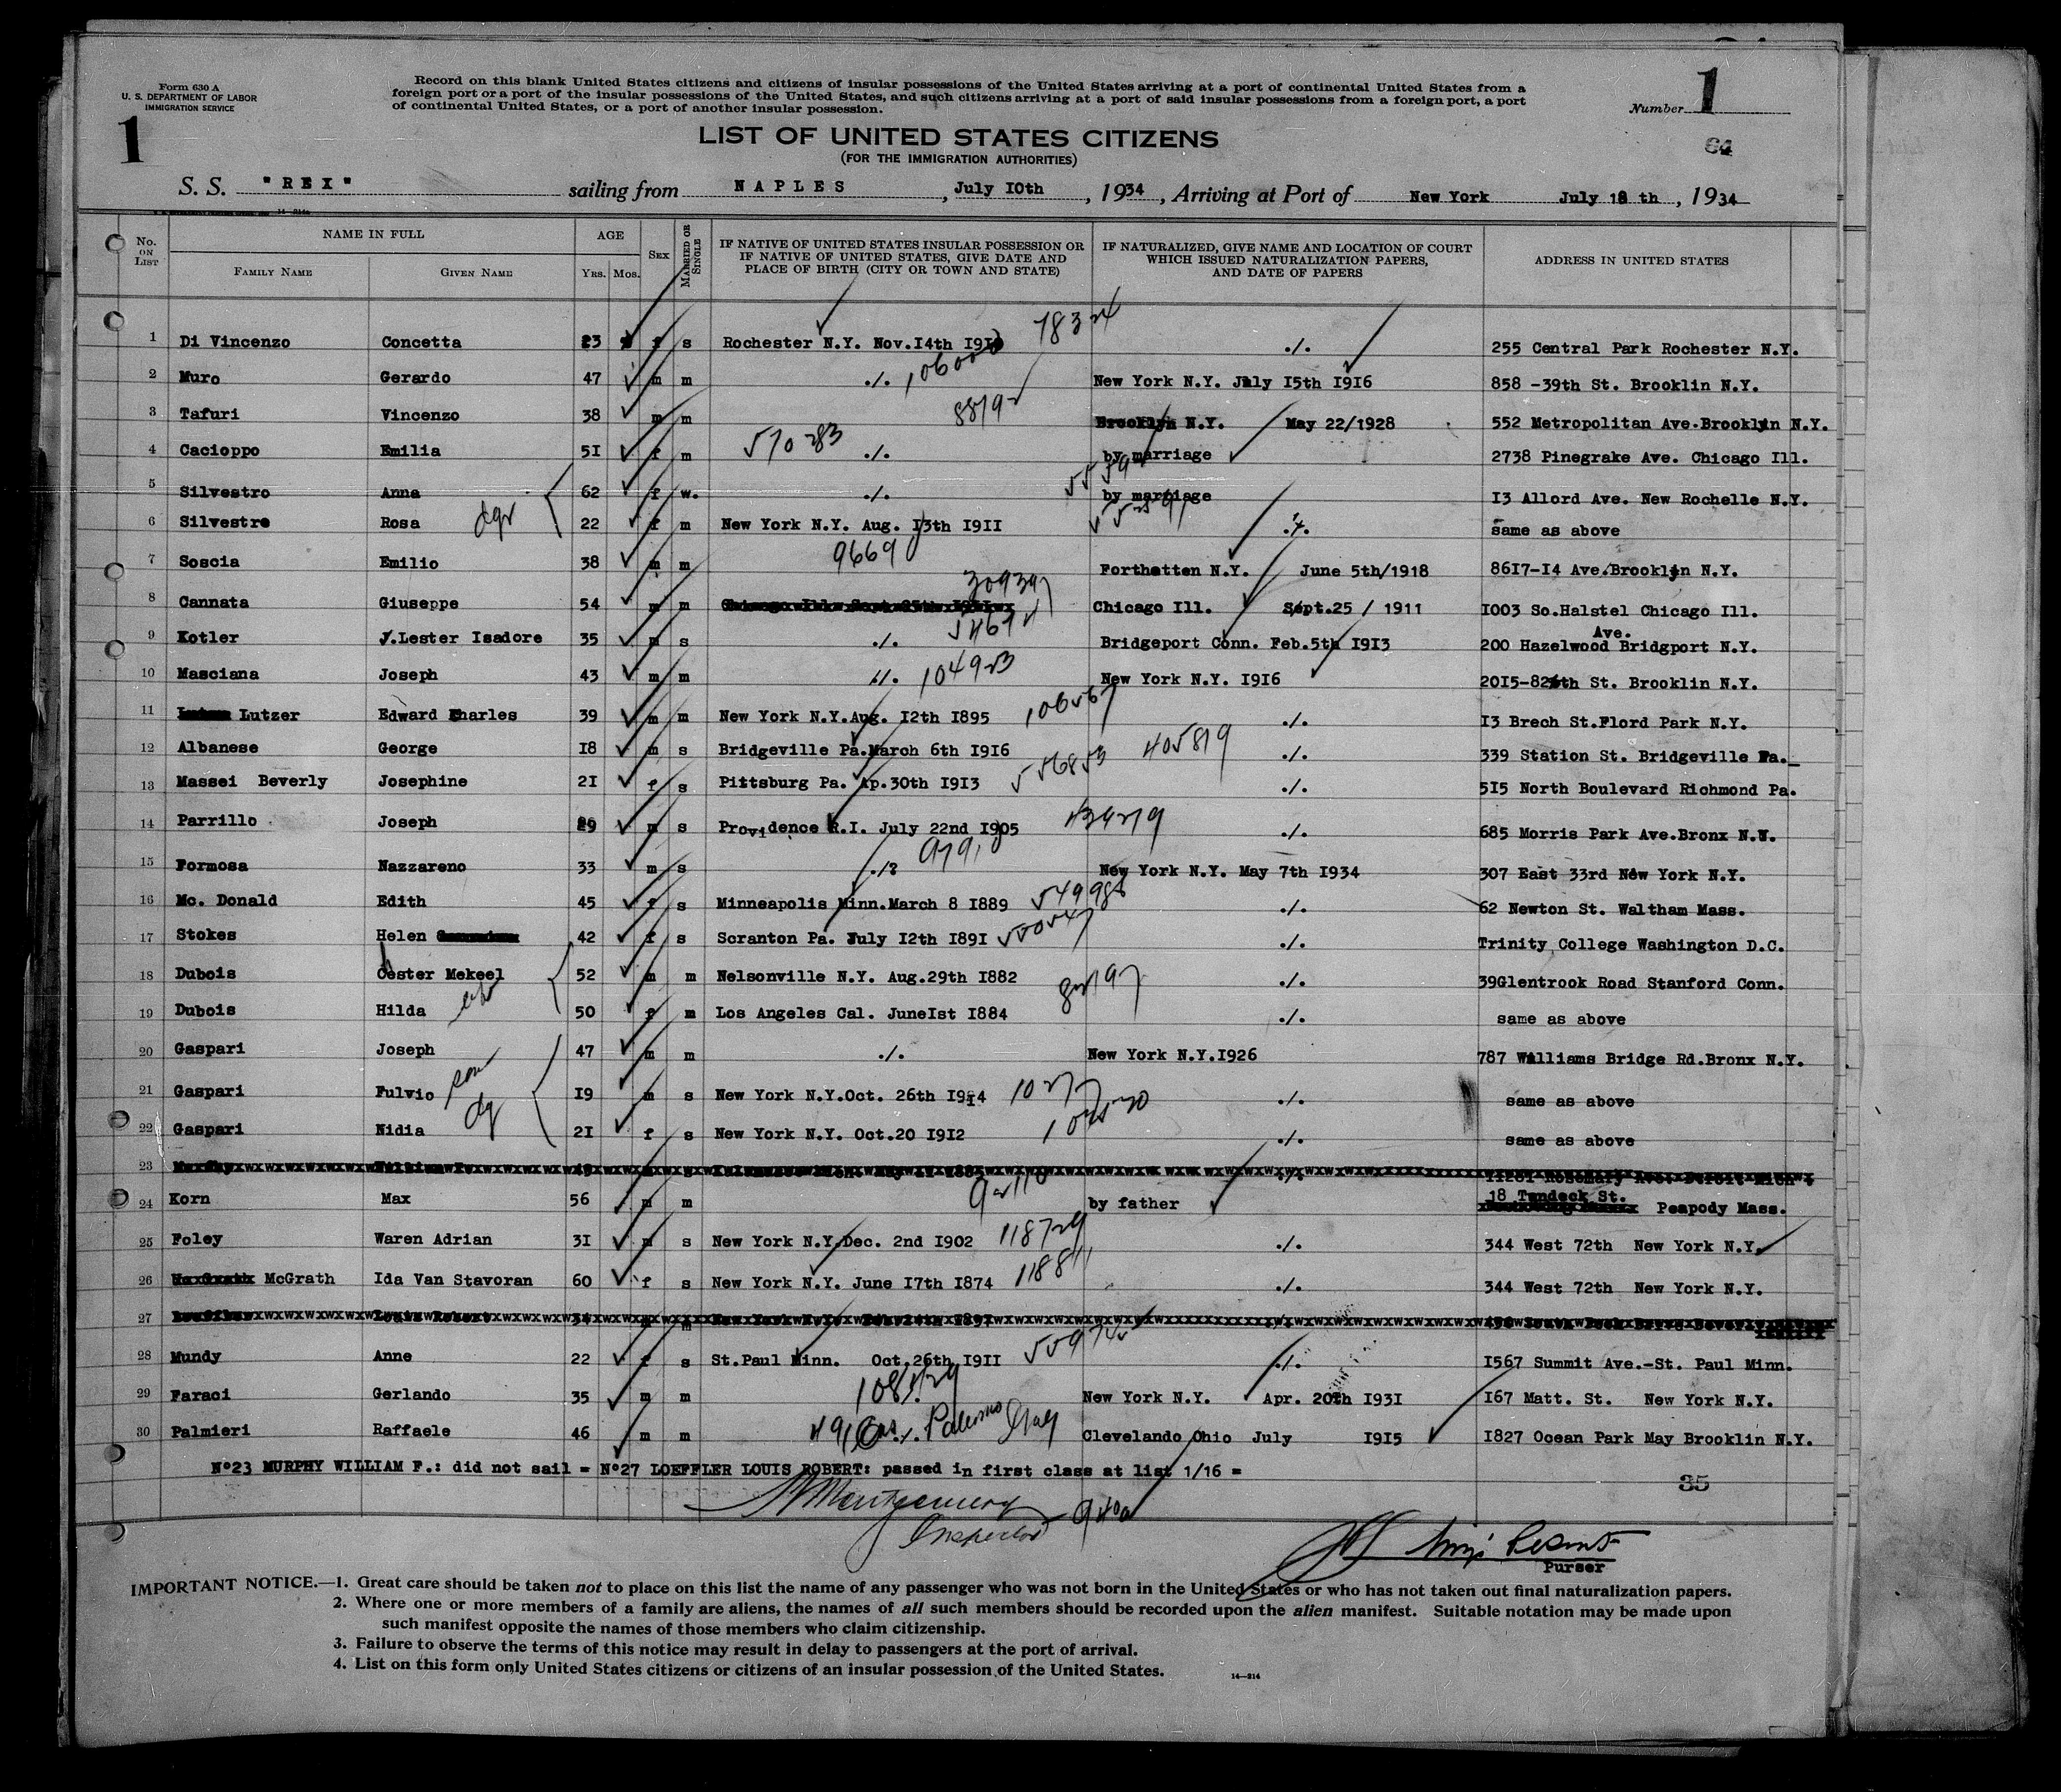 Form 630 A
U. S. DEPARTMENT OF LABOR
IMMIGRATION SERVICE
1
Record on this blank United States citizens and citizens of insular possessions of the United States arriving at a port of continental United States from a
foreign port or a port of the insular possessions of the United States, and such citizens arriving at a port of said insular possessions from a foreign port, a port
of continental United States, or a port of another insular possession.
Number 1
64
LIST OF UNITED STATES CITIZENS
(FOR THE IMMIGRATION AUTHORITIES)
S. S. "REX" sailing from NAPLES, July I0th, 1934, Arriving at Port of New York July 18 th, 1934
No. ON LIST NAME IN FULL AGE SEX MARRIED OR SINGLE IF NATIVE OF UNITED STATES INSULAR POSSESSION OR IF NATIVE OF UNITED STATES, GIVE DATE AND PLACE OF BIRTH (CITY OR TOWN AND STATE) IF NATURALIZED, GIVE NAME AND LOCATION OF COURT WHICH ISSUED NATURALIZATION PAPERS, AND DATE OF PAPERS ADDRESS IN UNITED STATES
FAMILY NAME GIVEN NAME YRS. MOS.
1 Di Vincenzo Concetta 23 f s Rochester N.Y. Nov.I4th 78324 ./. 255 Central Park Rochester N.Y.
2 Muro Gerardo 47 m m ./. 106000 New York N.Y. July I5th I9I6 858 -39th St. Brooklin N.Y.
3 Tafuri Vincenzo 38 m m 88192 Brooklyn N.Y. May 22/1928 552 Metropolitan Ave.Brooklyn N.Y.
4 Cacioppo Emilia 5I f m 570283 ./. by marriage 2738 Pinegrake Ave. Chicago Ill.
5 Silvestro Anna 62 f w. ./. by marriage I3 Allord Ave. New Rochelle N.Y.
6 Silvestre Rosa 22 f m New York N.Y. Aug. I3th I9II ./. same as above
7 Soscia Emilio 38 m m 9669 Forthatten N.Y. June 5th/1918 86I7-I4 Ave.Brooklyn N.Y.
8 Cannata Giuseppe 54 m m 30939 Chicago Ill. Sept.25 / 1911 I003 So.Halstel Chicago Ill.
9 Kotler J.Lester Isadore 35 m s ./. Bridgeport Conn. Feb.5th I9I3 200 Hazelwood Ave. Bridgport N.Y.
10 Masciana Joseph 43 m m ./. 104923 New York N.Y. I9I6 20I5-82th St. Brooklin N.Y.
11 Lutzer Edward Charles 39 m m New York N.Y.Aug. I2th I895 106567 ./. I3 Brech St.Flord Park N.Y.
12 Albanese George I8 m s Bridgeville Pa.March 6th I9I6 405819 ./. 339 Station St. Bridgeville Pa.
13 Massei Beverly Josephine 2I f s Pittsburg Pa. Ap.30th I9I3 556853 ./. 5I5 North Boulevard Richmond Pa.
14 Parrillo Joseph 29 m s Providence R.I. July 22nd I905 434219 ./. 685 Morris Park Ave.Bronx
15 Formosa Nazzareno 33 m s New York N.Y. May 7th I934 307 East 33rd New York N.Y.
16 Mc. Donald Edith 45 f s Minneapolis Minn.March 8 I889 549988 ./. 62 Newton St. Waltham Mass.
17 Stokes Helen 42 f s Scranton Pa. July I2th I89I ./. Trinity College Washington D.C.
18 Dubois Cester Mekeel 52 m m Nelsonville N.Y. Aug.29th I882 ./. 39Glentrook Road Stanford Conn.
19 Dubois Hilda 50 f m Los Angeles Cal. JuneIst I884 ./. same as above
20 Gaspari Joseph 47 m m ./. New York N.Y.I926 787 Williams Bridge Rd.Bronx N.Y.
21 Gaspari Fulvio son I9 m s New York N.Y.Oct. 26th I9I4 ./. same as above
22 Gaspari Nidia 2I f s New York N.Y. Oct.20 I9I2 ./. same as above
23
24 Korn Max 56 m m by father 18 Tandeck St. Peapody Mass.
25 Foley Waren Adrian 3I m s New York N.Y.Dec. 2nd I902 118729 ./. 344 West 72th New York N.Y.
26 McGrath Ida Van Stavoran 60 f s New York N.Y. June I7th I874 118811 ./. 344 West 72th New York N.Y.
27
28 Mundy Anne 22 f s St.Paul Minn. Oct.26th I9II ./. I567 Summit Ave.-St. Paul Minn.
29 Faraci Gerlando 35 m m New York N.Y. Apr. 20th I93I I67 Matt. St. New York N.Y.
30 Palmieri Raffaele 46 m m Palermo Italy Clevelando Ohio July I9I5 I827 Ocean Park May Brooklin N.Y.
N°23 MURPHY WILLIAM F.: did not sail = N°27 LOEFFLER LOUIS ROBERT: passed in first class at list 1/16 =
35
Montgomery
Inspector 940a
Purser
IMPORTANT NOTICE.—1. Great care should be taken not to place on this list the name of any passenger who was not born in the United States or who has not taken out final naturalization papers.
2. Where one or more members of a family are aliens, the names of all such members should be recorded upon the alien manifest. Suitable notation may be made upon
such manifest opposite the names of those members who claim citizenship.
3. Failure to observe the terms of this notice may result in delay to passengers at the port of arrival.
4. List on this form only United States citizens or citizens of an insular possession of the United States.
14—214